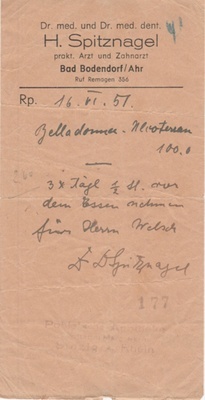 Dr. med. und Dr. med. dent.
H. Spitznagel
prakt. Arzt und Zahnarzt
Bad Bodendorf/Ahr
Ruf Remagen 356
Rp. 16. VI. 51.
Belladonna-
100.0
3 x Tägl ½ Sl. vor
dem Essen nehmen
fürs Herrn Welsch
Dr DSpitznagel
177